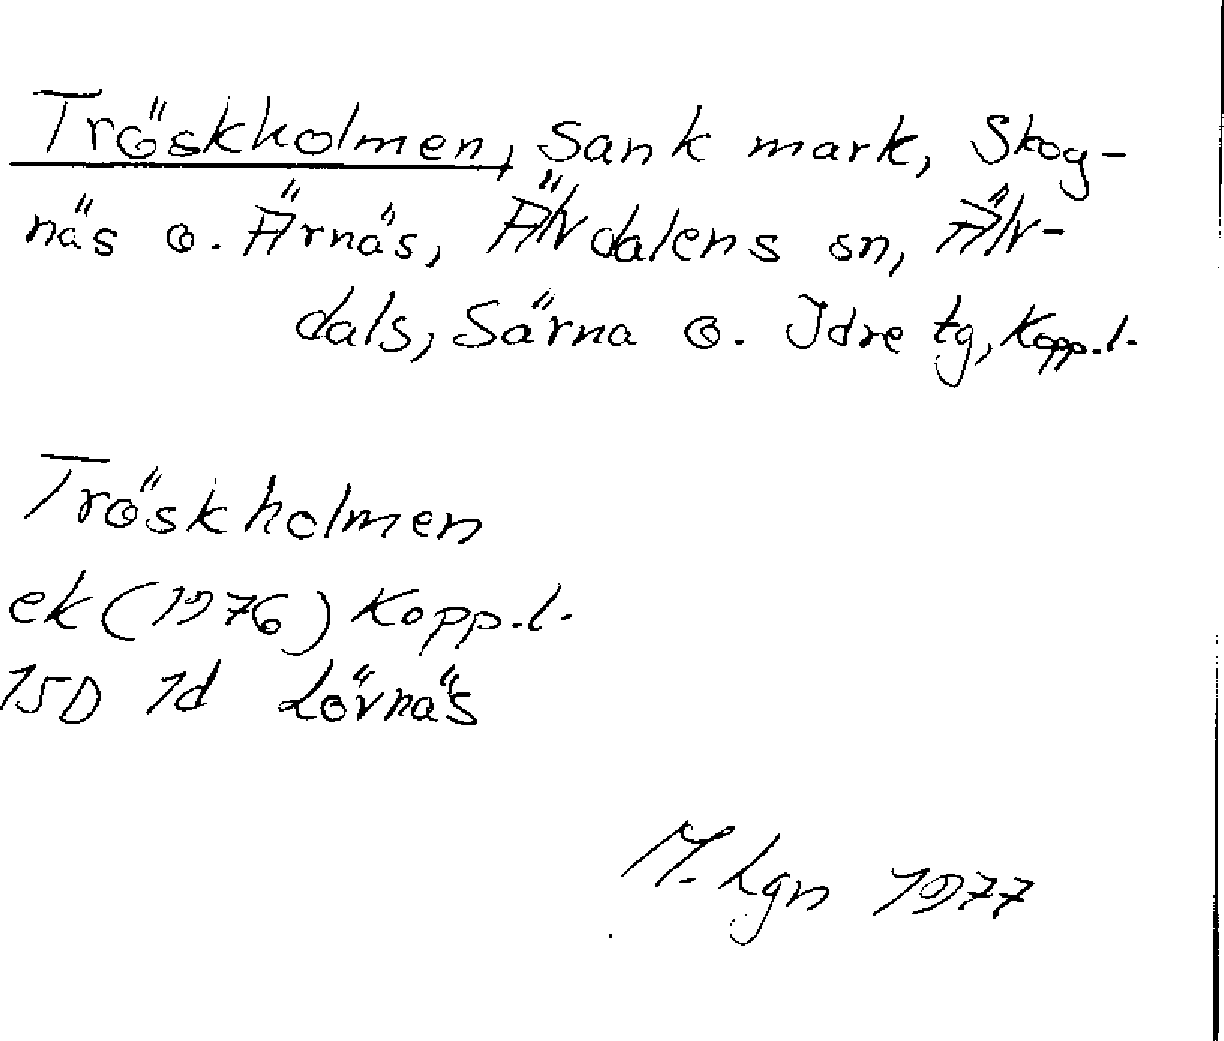 Tröskholmen, Sank mark, Skog-
näs o. Ärnäs, Älvdalens sn, Älv-
dals, Särna o. Idre tg, Kopp.l.
Tröskholmen
ek (1976) Kopp.l.
15D 1d Lövnäs
M. Lgn 1977